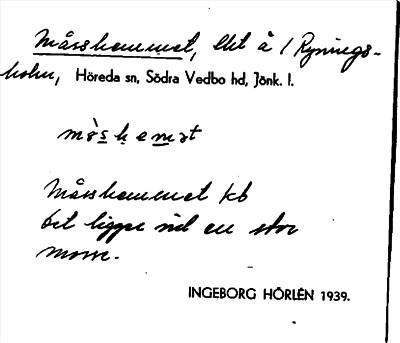 Mårshemmet, Ukt å / Rynings-
holm, Höreda sn, Södra Vedbo hd, Jönk. l.
Mårshemmet kb
det ligger vid en stor
mosse.
INGEBORG HÖRLÉN 1939.